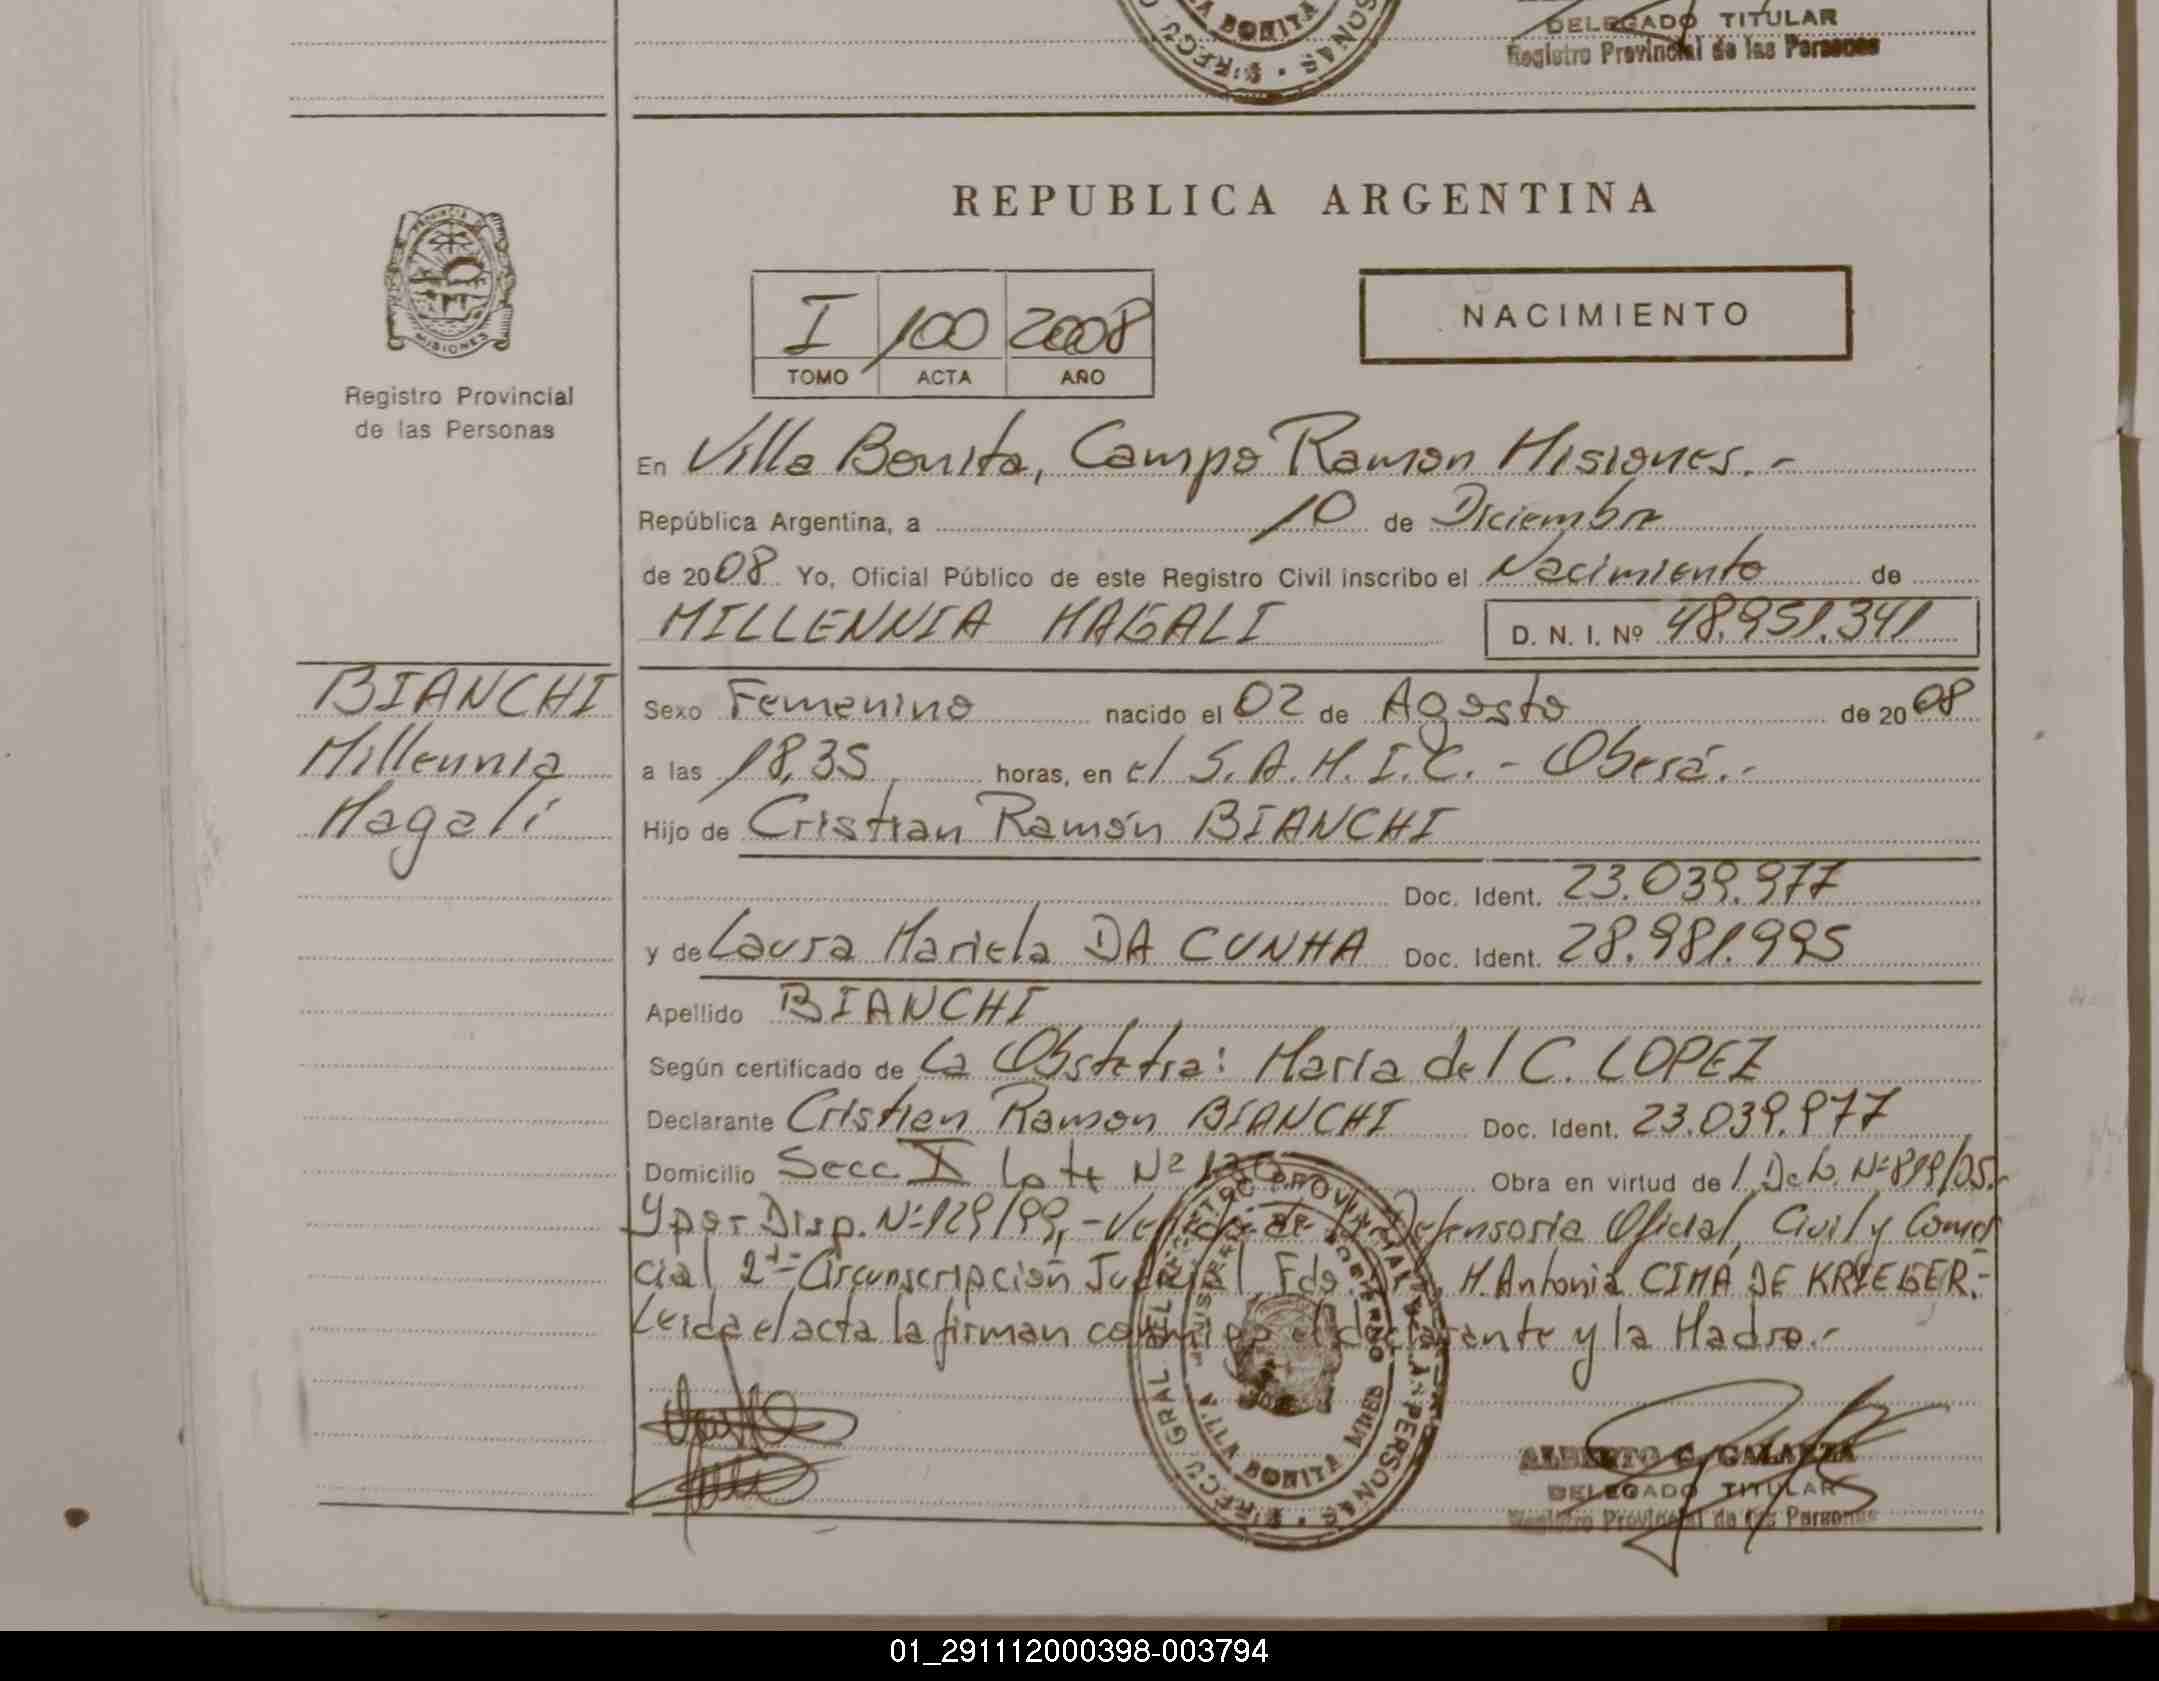 DELEGADO TITULAR
Registro Provincial de las Personas
REPUBLICA ARGENTINA
PROVINCIA DE MISIONES
I 100 2008
TOMO ACTA AÑO
NACIMIENTO
Registro Provincial
de las Personas
En Villa Bonita, Campo Ramon Misiones.-
República Argentina, a 10 de Diciembre
de 2008 Yo, Oficial Público de este Registro Civil inscribo el Nacimiento de
MILLENNIA MAGALI D. N. I. Nº 48.951.341
BIANCHI
Millennia
Magali
Sexo Femenino nacido el 02 de Agosto de 2008
a las 18,35 horas, en el S.A.M.I.C. - Oberá.-
Hijo de Cristian Ramón BIANCHI
Doc. Ident. 23.039.977
y de Laura Mariela DA CUNHA Doc. Ident. 28.981.995
Apellido BIANCHI
Según certificado de La Obstetra: Maria del C. LOPEZ
Declarante Cristian Ramon BIANCHI Doc. Ident. 23.039.977
Domicilio Secc. X Lote Nº 130 Obra en virtud de l Dcto. Nº 819/05.-
Y por Disp. Nº 129/99,- de Defensoria Oficial, Civil y Comer
cial 2da Circunscripción Judicial, Fdo. M. Antonia CIMA DE KRIEGER.-
Leida el acta la firman conmigo el declarante y la Madre.-
ALBERTO C. GALARZA
DELEGADO TITULAR
Registro Provincial de las Personas
VILLA BONITA MNES
01_291112000398-003794